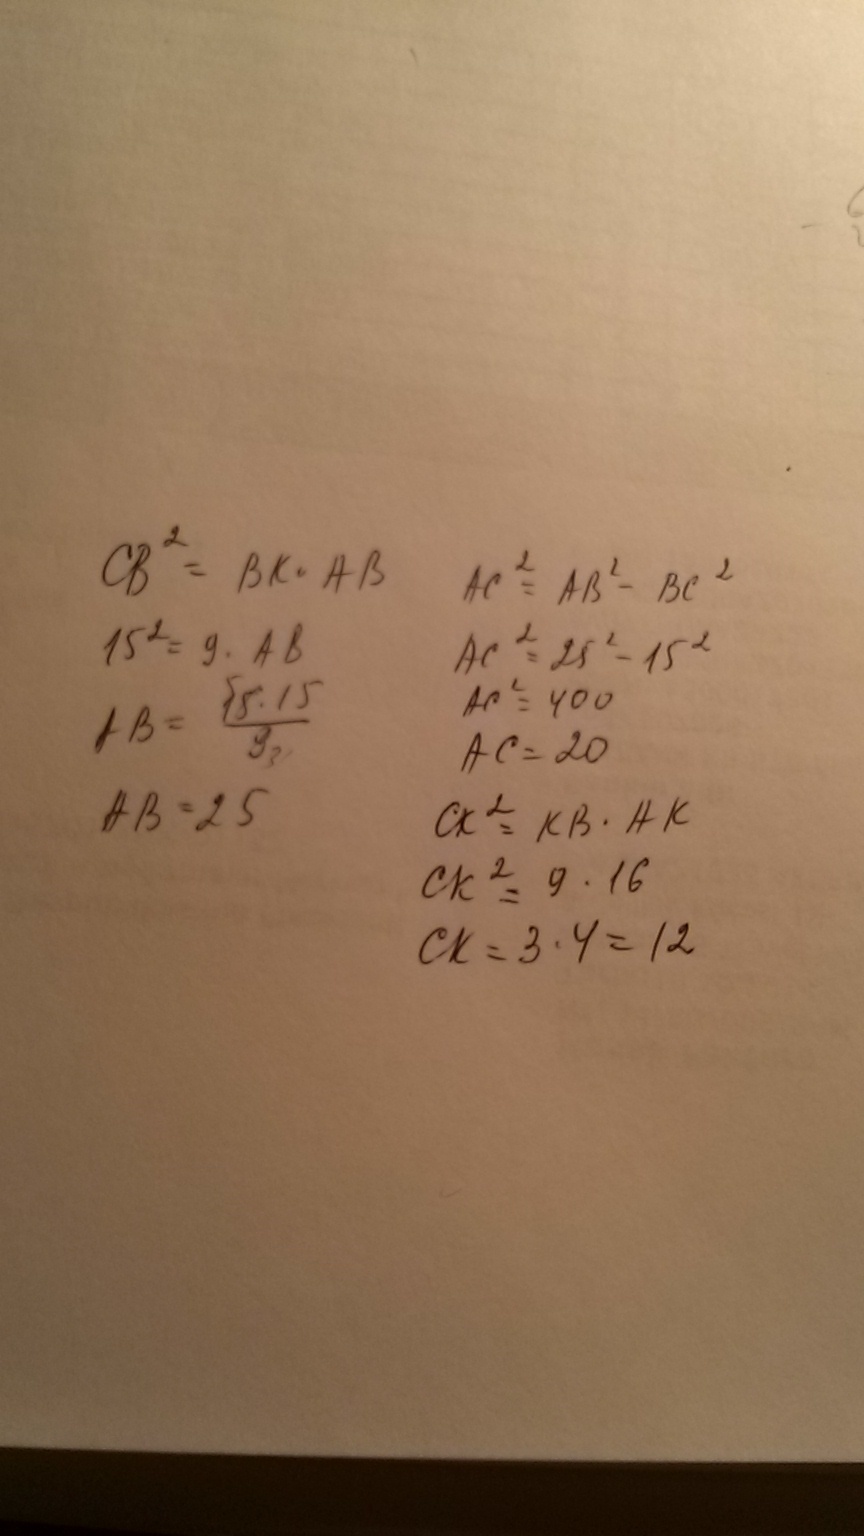 CB² = BK · AB
15² = 9 · AB
AB = 15·15/9
AB = 25
AC² = AB² - BC²
AC² = 25² - 15²
AC² = 400
AC = 20
CK² = KB · AK
CK² = 9 · 16
CK = 3 · 4 = 12